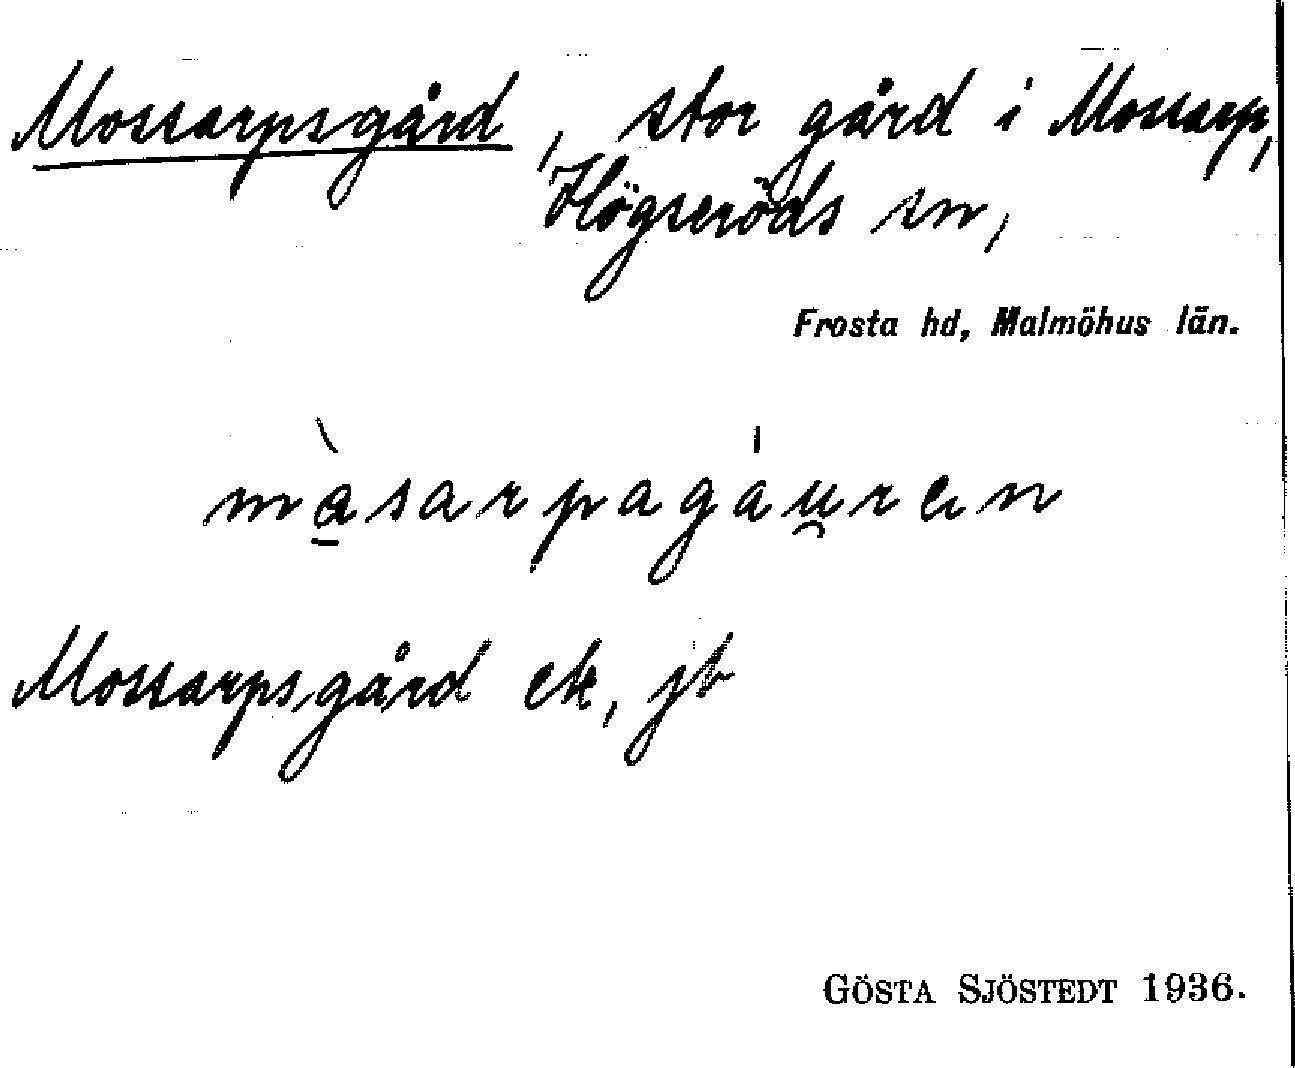 Mossarpsgård, stor gård i Mossarp,
Högseröds sn,
Frosta hd, Malmöhus län.
màsarpagáu̯ren
Mossarpsgård ek, jb
GÖSTA SJÖSTEDT 1936.